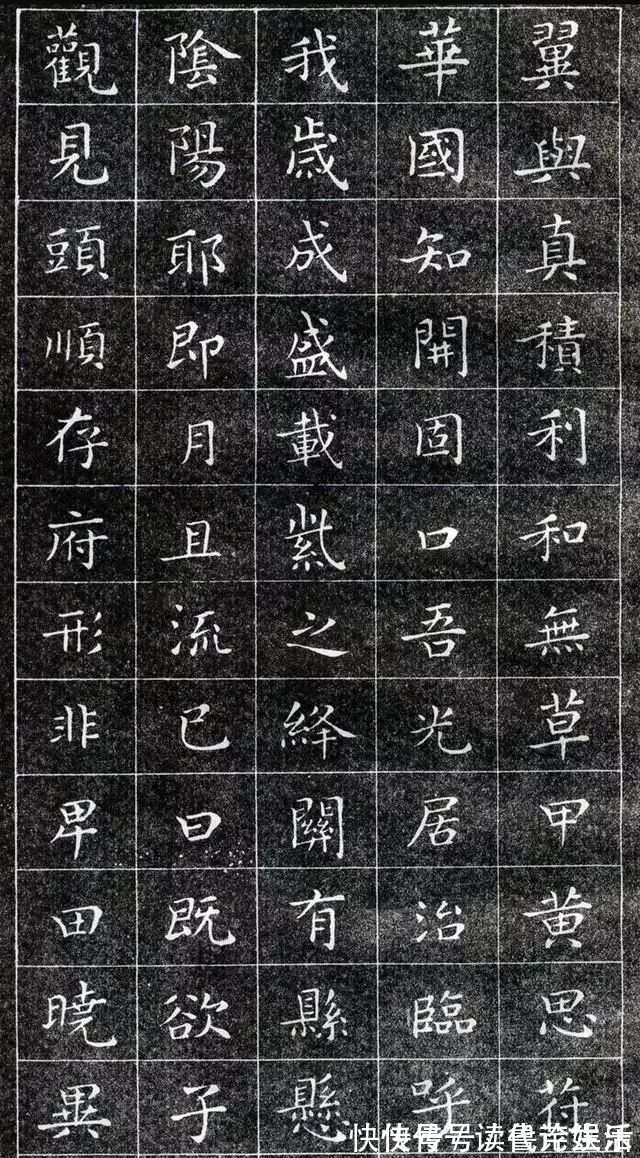 翼與真積利和無草甲黄思荇
華國知開固口吾光居治臨呼
我歳成盛載紫之絳關有縣懸
陰陽耶即月且流已曰既欲子
觀見頭順存府形非卑田曉異
快快传号